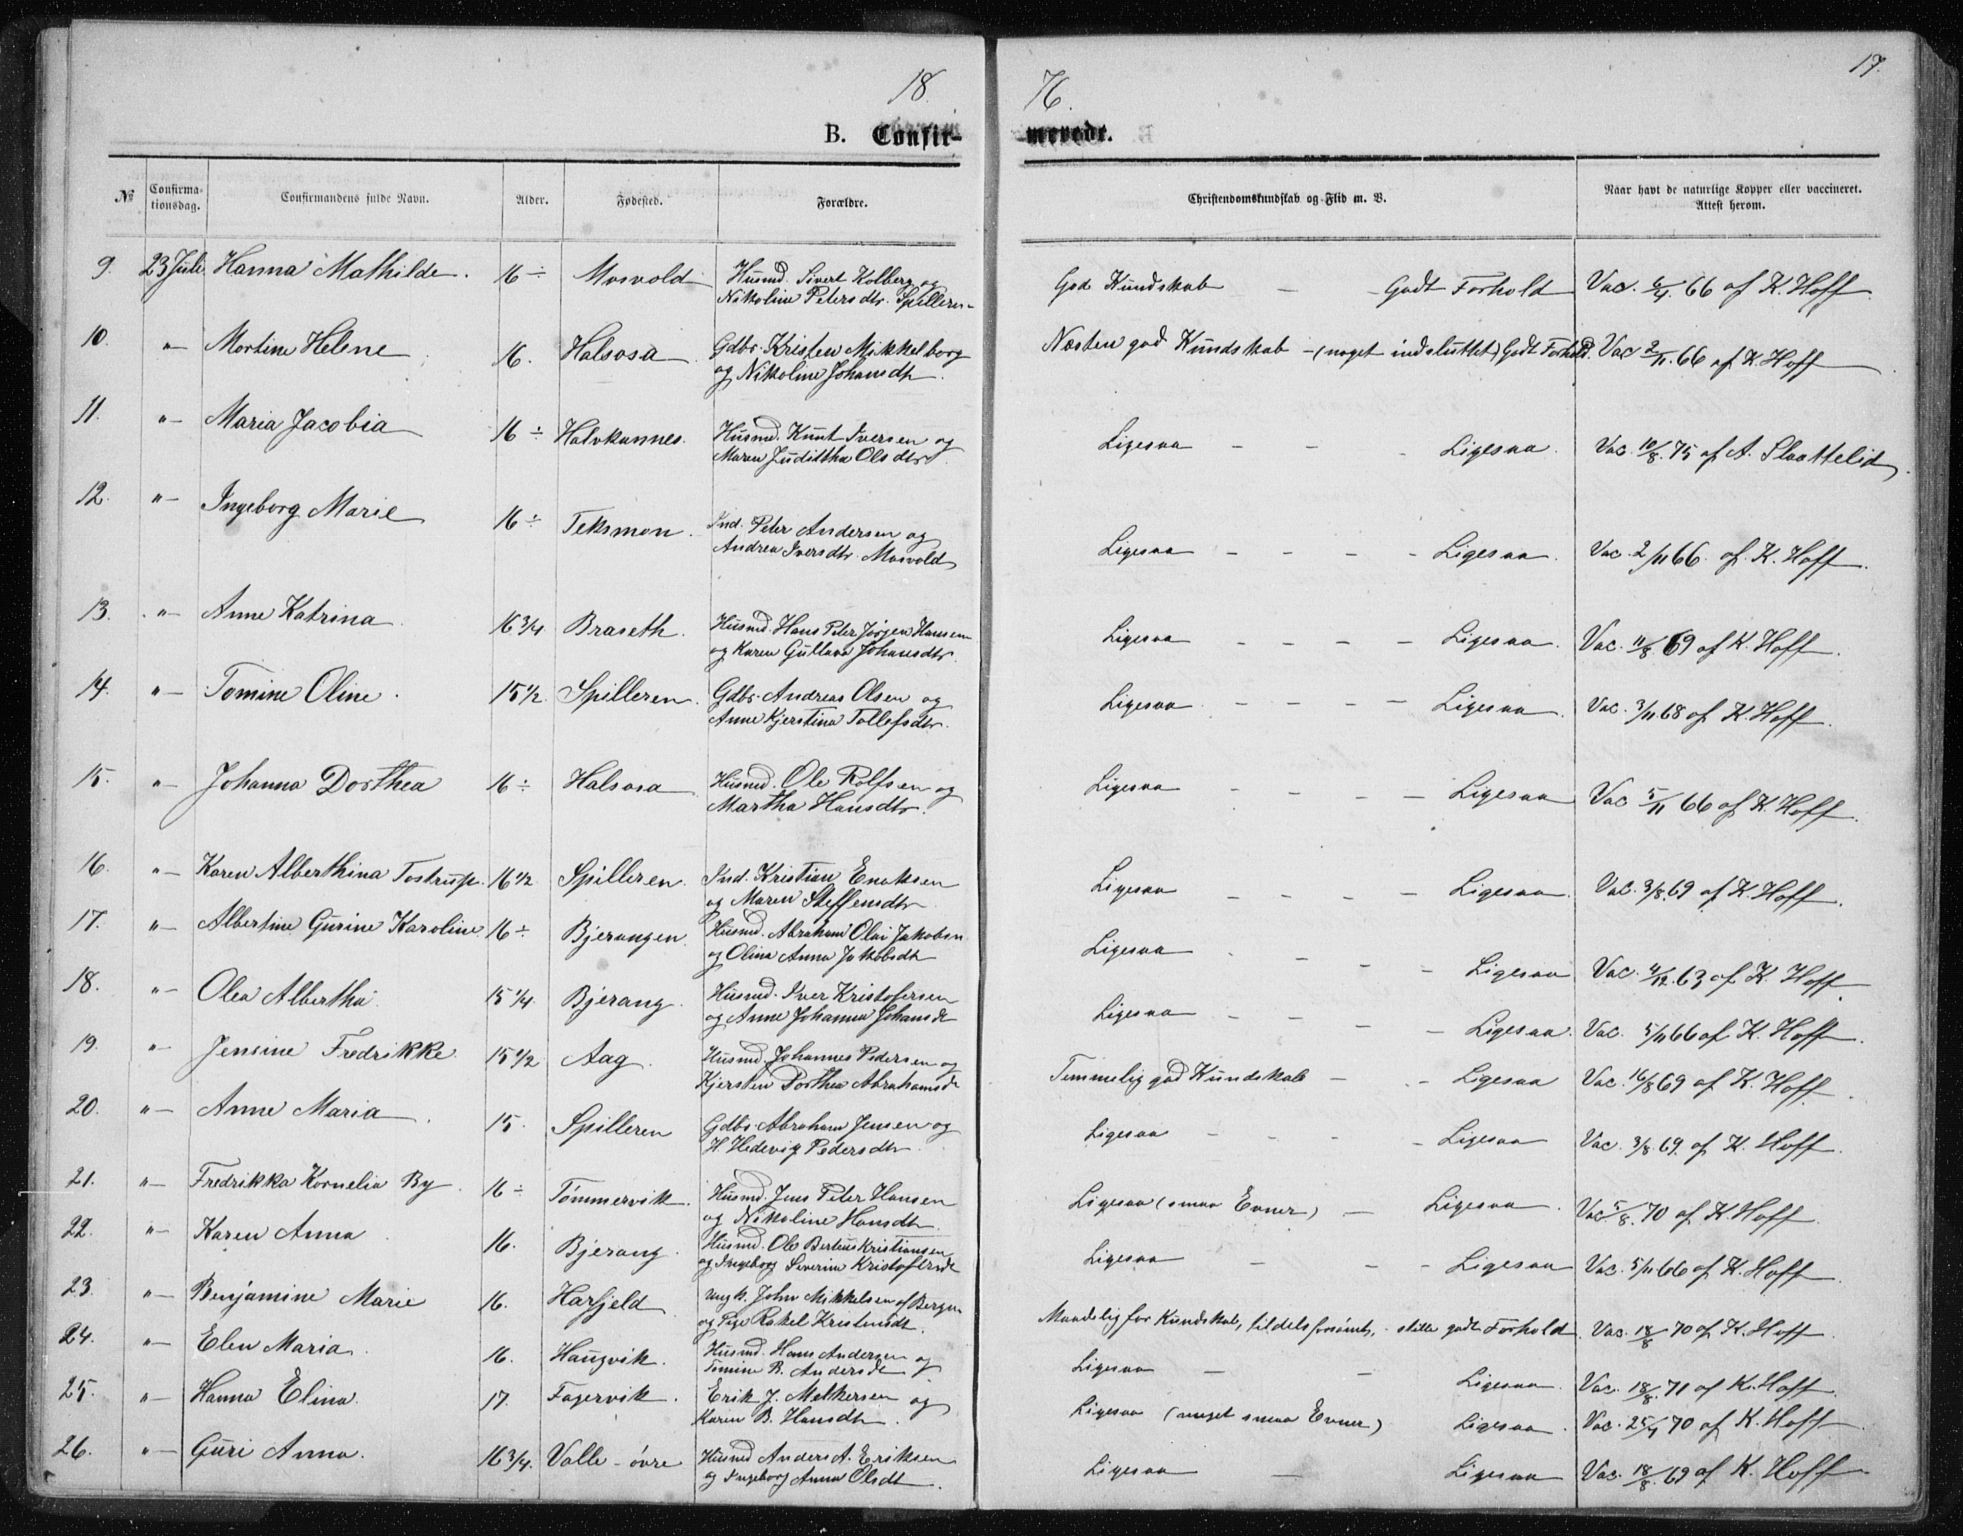 18 76. 17.
B. Confir- merede.
№ Confirma-tionsdag. Confirmandens fulde Navn. Alder. Fødested. Forældre. Christendomskundskab og Flid m. V. Naar havt de naturlige Kopper eller vaccineret. Attest herom.
9. 23 Juli. Hanna Mathilde. 16 ÷ Mosvold Husmd. Sivert Kolberg og God Kundskab — Godt Forhold Vac. 6/4. 66 af K. Hoff
Nikoline Petersdtr. Spilleren
10. "— Martine Helene 16. Halsosa Gdbr. Kristen Mikkelborg Næsten god Kundskab — (noget indsluttet) Godt Forhold. Vac 2/11. 66 af K. Hoff
og Nikoline Johansdtr.
11. "— Maria Jacobia 16 ÷ Halvkannes. Husmd. Knut Iversen og Ligesaa — — - Ligesaa. Vac. 10/8. 75 af A. Slaattelid.
Maren Judittha Olsdtr.
12. "— Ingeborg Marie 16 ÷ Teksmon. Ind. Peter Andersen og Ligesaa — — — - Ligesaa. Vac. 2/11 66. af K. Hoff.
Andrea Iversdtr. Mosvold
13. "— Anne Katrina 16 3/4 Braseth. Husmd. Hans Peter Jørgen Hansen Ligesaa — — — — Ligesaa. Vac. 11/8. 69 af K. Hoff.
og Karen Gullava Johansdtr.
14. "— Tomine Oline. 15 1/2 Spilleren. Gdbr. Andreas Olsen og Ligesaa. — — — — Ligesaa. Vac. 3/11 68 af K. Hoff.
Anne Kjerstina Tollefsdtr.
15. "— Johanna Dorthea 16 ÷ Halsosa Husmd. Ole Rolfsen og Ligesaa — — — — Ligesaa Vac 5/11 66 af K. Hoff.
Martha Hansdtr.
16. "— Karen Alberthina Tostrup. 16 1/2 Spilleren. Ind. Kristian Enoksen Ligesaa — — — Ligesaa. Vac. 3/8. 69 af K. Hoff.
og Maren Steffensdtr
17. "— Albertine Gurine Karoline 16 ÷ Bjerangen. Husmd. Abraham Olai Jakobsen Ligesaa — — — — Ligesaa Vac. 4/12. 63 af K. Hoff.
og Olina Anna Jakobsdt
18. "— Olea Albertha 15 1/4. Bjerang. Husmd. Iver Kristofersen Ligesaa — — — — Ligesaa. Vac. 5/11 66 af K. Hoff.
og Anne Johanna Johansdt
19. "— Jensine Fredrikke 15 1/2 Aag. Husmd. Johannes Pedersen og Temmelig god Kundskab — - Ligesaa Vac. 16/8 69 af K. Hoff.
Kjersten Dorthea Abrahamsdt
20. "— Anne Maria. 15. Spilleren Gdbr. Abraham Jensen og Ligesaa — — — - Ligesaa Vac. 3/8. 69. af K. Hoff.
H. Hedevig Pedersdtr.
21. "— Fredrikka Kornelia By. 16 ÷ Tømmervik. Husmd. Jens Peter Hansen Ligesaa (smaa Evner) — Ligesaa. Vac 5/8. 70 af K. Hoff.
og Nikoline Hansdt.
22. "— Karen Anna 16. Bjerang. Husmd. Ole Berteus Kristiansen Ligesaa — — - Ligesaa Vac. 5/11 66 af K. Hoff.
og Ingeborg Severine Kristofersdt
23. "— Benjamine Marie 16. Harfjeld ungk. John Mikkelsen af Bergen Maadelig for Kundskab, tildels forsømt, - stille godt Forhold. Vac. 18/8 70 af K. Hoff.
og Pige Rakel Kristensdt.
24. "— Elen Maria. 16. Haugvik. Husmd. Hans Andersen og Ligesaa — — Ligesaa. Vac. 18/8. 71 af K. Hoff.
Tomine B. Andersdt
25. "— Hanna Elina. 17. Fagervik. Erik J. Melkersen og Ligesaa (noget smaa Evner) Ligesaa. Vac. 25/7 70 af K. Hoff.
Karen B. Hansdt.
26. "— Guri Anna. 16 3/4. Valle - øvre Husmd Anders A. Eriksen Ligesaa — Ligesaa Vac. 18/8. 69 af K. Hoff.
og Ingeborg Anna Olsdt.